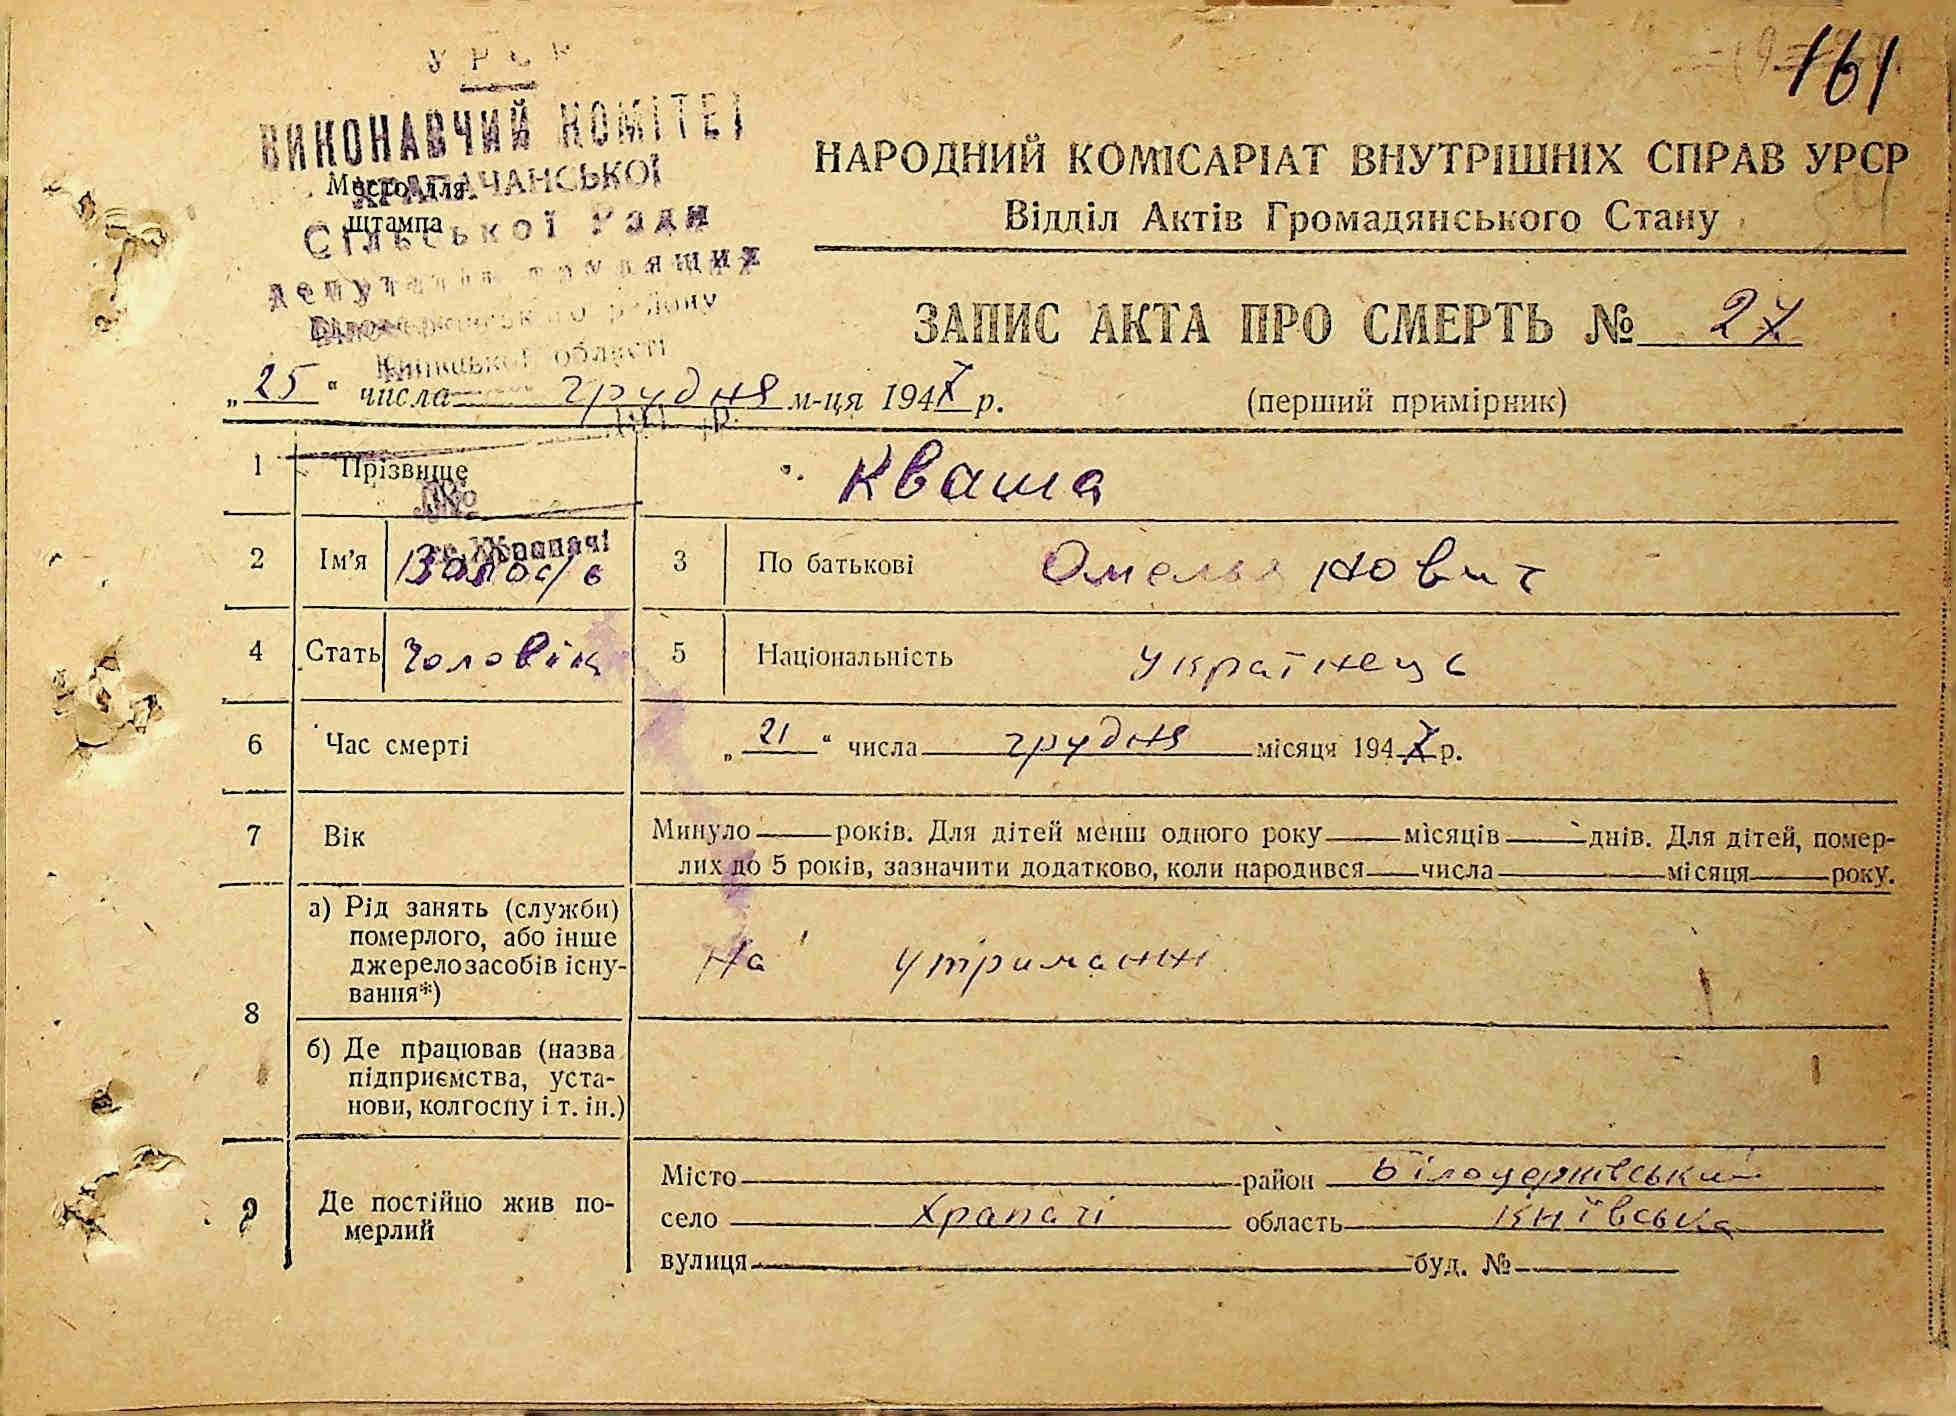 УРСР
161
ВИКОНАВЧИЙ КОМІТЕТ
ХРАПАЧАНСЬКОЇ
Місто для
штампа
Сільської Ради
депутатів трудящих
Білоцерківського району
Київської області
с. Храпачі
НАРОДНИЙ КОМІСАРІАТ ВНУТРІШНІХ СПРАВ УРСР
Відділ Актів Громадянського Стану
ЗАПИС АКТА ПРО СМЕРТЬ № 27
„25“ числа грудня м-ця 1947 р.
(перший примірник)
1 Прізвище Кваша
2 Ім'я 3 По батькові Омельянович
4 Стать Чоловік 5 Національність Українець
6 Час смерті „21“ числа грудня місяця 1947 р.
7 Вік Минуло років. Для дітей менш одного року місяців днів. Для дітей, помер-
лих до 5 років, зазначити додатково, коли народився числа місяця року.
8 а) Рід занять (служби)
померлого, або інше
джерело засобів існу-
вання*)
На утриманні
б) Де працював (назва
підприємства, уста-
нови, колгоспу і т. ін.)
9 Де постійно жив по-
мерлий
Місто район Білоцерківський
село Храпачі область Київська
вулиця буд. №